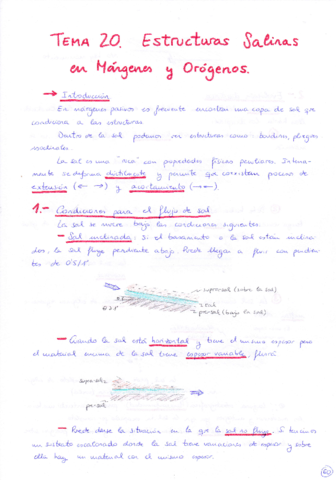 TEMA 20. Estructuras Salinas
en Márgenes y Orógenos.
→ Introducción
En márgenes pasivos es frecuente encontrar una capa de sal que
condiciona a las estructuras.
Dentro de la sal podemos ver estructuras como: boudins, pliegues
La sal es una "roca" con propiedades físicas peculiares. Interna-
mente se deforma dúctilmente y permite que coexistan procesos de
extensión (← →) y acortamiento (→ ←).
1.- Condiciones para el flujo de sal.
La sal se mueve bajo las condiciones siguientes:
- Sal inclinada: si el basamento o la sal están inclina-
dos, la sal fluye pendiente abajo. Puede llegar a fluir con pendien-
tes de 0'5/1º.
supra-sal (sobre la sal)
Sal
pre-sal (bajo la sal)
- Cuando la sal está horizontal y tiene el mismo espesor pero
el material encima de la sal tiene espesor variable, fluirá
supra-sal
pre-sal
- Puede darse la situación en la que la sal no fluya. Si tenemos
un sustrato escalonado donde la sal tiene variaciones de espesor y sobre
ella hay un material con el mismo espesor.